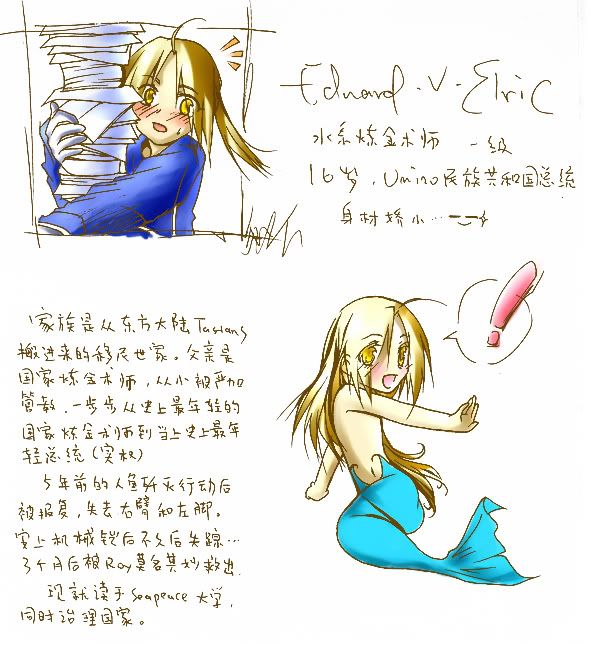 Edward·V·Elric
水系炼金术师 一级
16岁，Umino民族共和国总统
身材娇小…
家族是从东方大陆Tasians
搬过来的移民世家。父亲是
国家炼金术师，从小被严加
管教，一步步从史上最年轻的
国家炼金术师到当上史上最年
轻总统（实权）
5年前的人鱼歼灭行动后
被报复，失去右臂和左脚。
安上机械铠后不久后失踪…
3个月后被Roy莫名其妙救出
现就读于Seapeace大学，
同时治理国家。